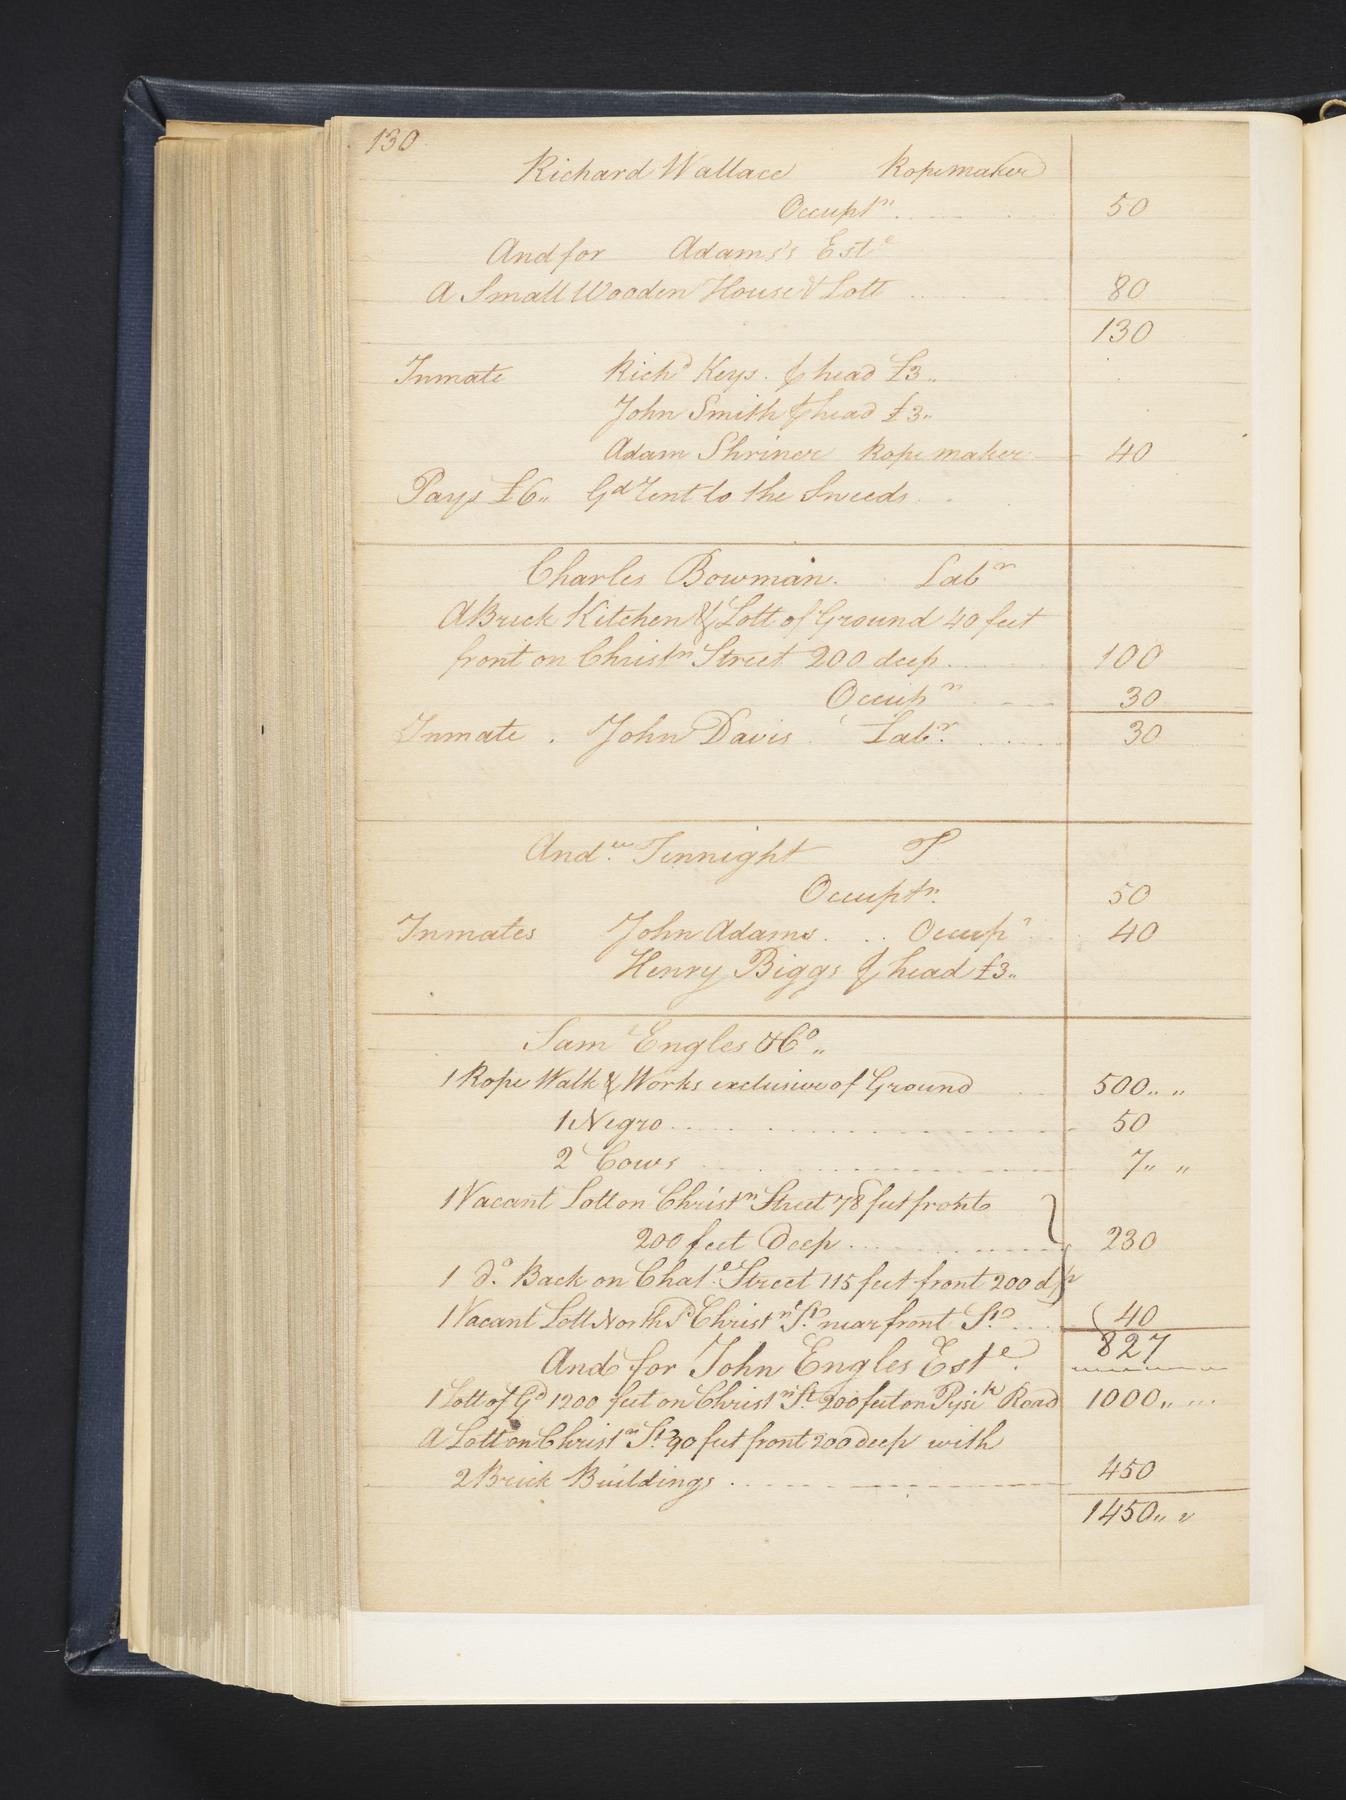 130
Richard Wallace Ropemaker
Occuptn 50
And for Adams's Este
A Small Wooden House & Lott 80
130
Inmate Richd Keys ⅌ head £3..
John Smith ⅌ head £3..
Adam Shriner Rope maker 40
Pays £6.. Gd Rent to the Sweeds
Charles Bowman. Labr
A Brick Kitchen & Lott of Ground 40 feet
front on Christn Street 200 deep 100
Occupn 30
Inmate . John Davis Labr. 30
Andw. Tennight T
Occuptn. 50
Inmates John Adams Occupn 40
Henry Biggs ⅌ head £3..
Sam Engles & Co..
1 Rope Walk & Works exclusive of Ground 500.. ..
1 Negro 50
2 Cows 7.. ..
1 Vacant Lott on Christn Street 78 feet front
200 feet Deep 230
1 do. Back on Chat.e Street 115 feet front 200 dp
1 Vacant Lott North Sd Christn St. near front St. 40
827
And for John Engles Este.
1 Lott of Gd 1200 feet on Christn St. 200 feet on Road 1000.. ..
A Lott on Christn St. 90 feet front 200 deep with
2 Brick Buildings 450
1450.. ..